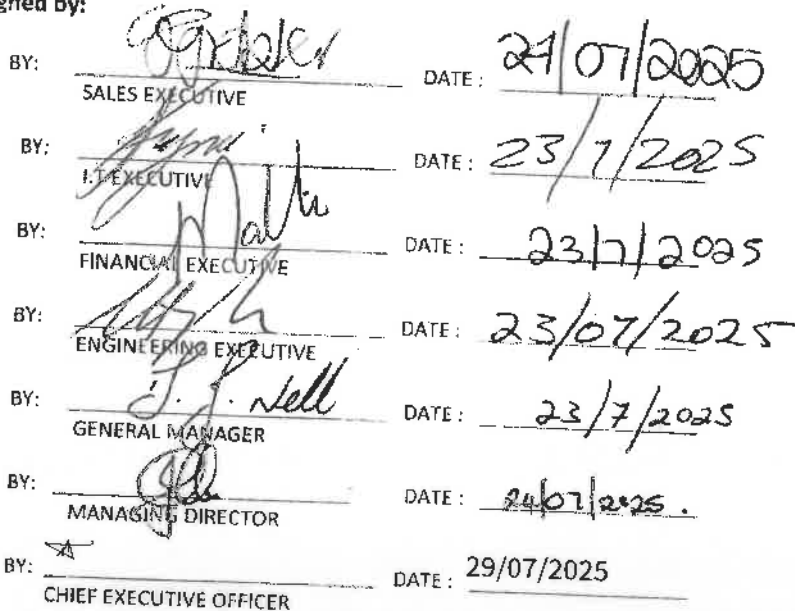 gned by:
BY: DATE: 24/07/2025
SALES EXECUTIVE
BY: DATE: 23/7/2025
I.T EXECUTIVE
BY: DATE: 23/7/2025
FINANCIAL EXECUTIVE
BY: DATE: 23/07/2025
ENGINEERING EXECUTIVE
BY: J. J. Nell DATE: 23/7/2025
GENERAL MANAGER
BY: DATE: 24/07/2025.
MANAGING DIRECTOR
BY: DATE: 29/07/2025
CHIEF EXECUTIVE OFFICER